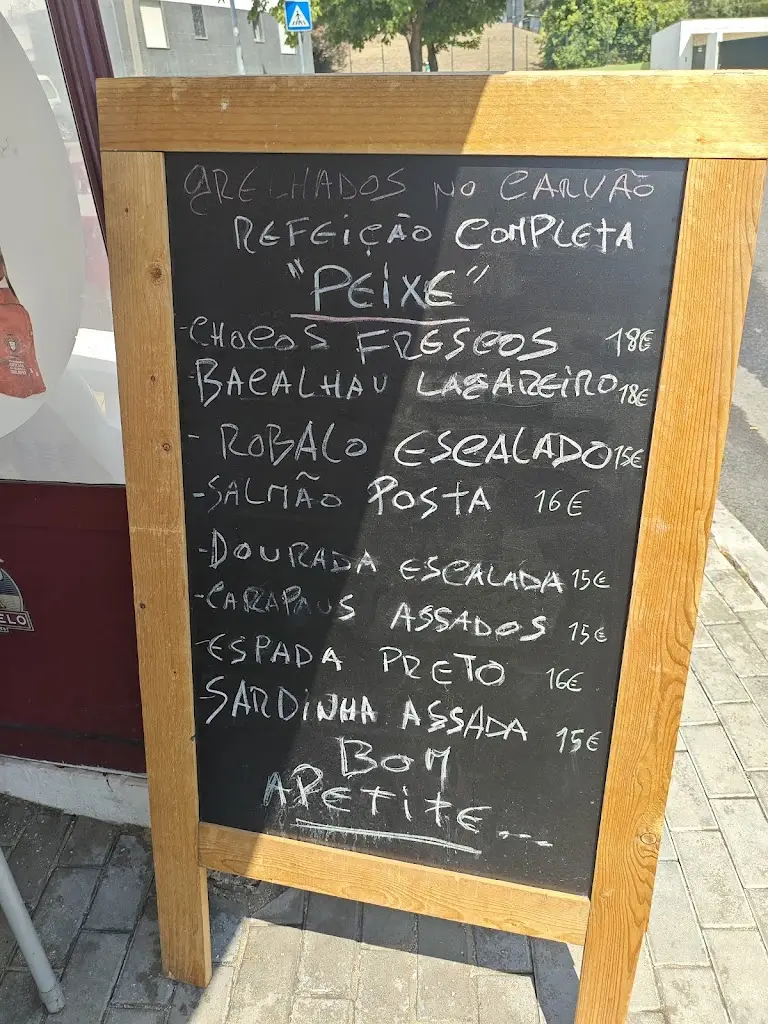 GRELHADOS NO CARVÃO
REFEIÇÃO COMPLETA
"PEIXE"
-CHOCOS FRESCOS 18€
-BACALHAU LAGAREIRO 18€
-ROBALO ESCALADO 15€
-SALMÃO POSTA 16€
-DOURADA ESCALADA 15€
-CARAPAUS ASSADOS 15€
-ESPADA PRETO 16€
-SARDINHA ASSADA 15€
BOM
APETITE...
ELO